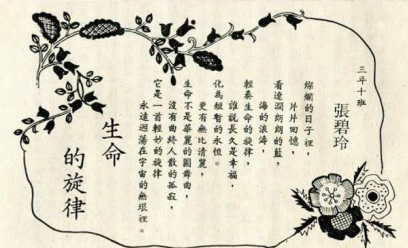 三年十班
張碧玲
燦爛的日子裡，
片片回憶，
看遠濶朗朗的藍，
海的浪濤，
輕奏生命的旋律，
誰說長久是幸福，
化為短暫的永恒。
更有無比清麗，
生命不是華麗的圓舞曲，
沒有曲終人散的孤寂，
它是一首輕妙的旋律
永遠迴蕩在宇宙的無垠裡。
生命
的旋律